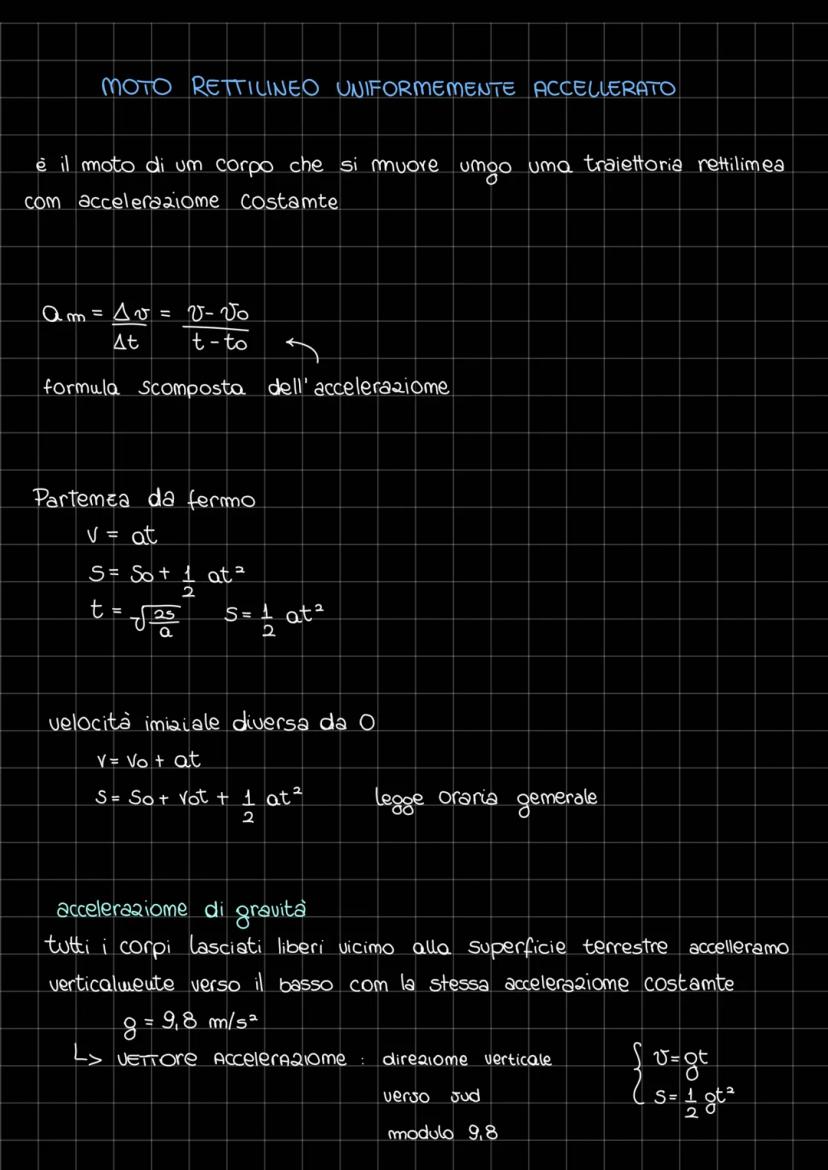 MOTO RETTILINEO UNIFORMEMENTE ACCELLERATO
è il moto di un corpo che si muove umgo una traiettoria rettilinea
con accelerazione costante
am = Δv/Δt = v-v₀/t-t₀
formula scomposta dell'accelerazione
Partenza da fermo
v = at
S = S₀ + 1/2 at²
t = √2s/a S = 1/2 at²
velocità iniziale diversa da 0
v = v₀ + at
S = S₀ + v₀t + 1/2 at² legge oraria generale
accelerazione di gravità
tutti i corpi lasciati liberi vicino alla superficie terrestre accellerano
verticalmente verso il basso con la stessa accelerazione costante
g = 9,8 m/s²
↳ VETTORE ACCELERAZIONE : direzione verticale { v = gt
verso sud S = 1/2 gt²
modulo 9,8